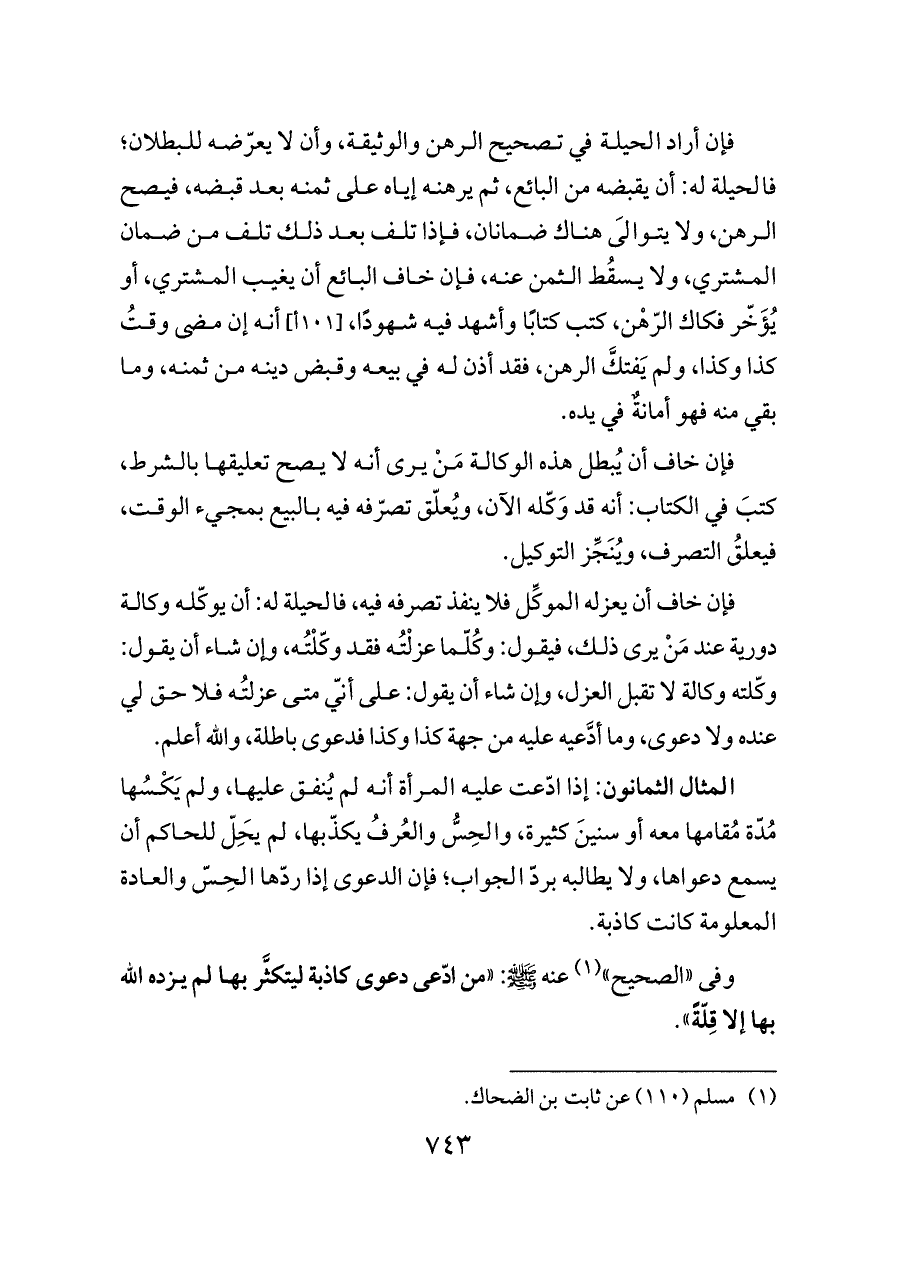 فإن أراد الحيلة في تصحيح الرهن والوثيقة، وأن لا يعرّضه للبطلان؛
فالحيلة له: أن يقبضه من البائع، ثم يرهنه إياه على ثمنه بعد قبضه، فيصح
الرهن، ولا يتوالَى هناك ضمانان، فإذا تلف بعد ذلك تلف من ضمان
المشتري، ولا يسقُط الثمن عنه، فإن خاف البائع أن يغيب المشتري، أو
يُؤَخّر فكاك الرّهْن، كتب كتابًا وأشهد فيه شهودًا، [١٠١أ] أنه إن مضى وقتُ
كذا وكذا، ولم يَفتكَّ الرهن، فقد أذن له في بيعه وقبض دينه من ثمنه، وما
بقي منه فهو أمانةٌ في يده.
فإن خاف أن يُبطل هذه الوكالة مَنْ يرى أنه لا يصح تعليقها بالشرط،
كتبَ في الكتاب: أنه قد وَكّله الآن، ويُعلّق تصرّفه فيه بالبيع بمجيء الوقت،
فيعلقُ التصرف، ويُنَجِّز التوكيل.
فإن خاف أن يعزله الموكِّل فلا ينفذ تصرفه فيه، فالحيلة له: أن يوكّله وكالة
دورية عند مَنْ يرى ذلك، فيقول: وكُلّما عزلْتُه فقد وكّلْتُه، وإن شاء أن يقول:
وكّلته وكالة لا تقبل العزل، وإن شاء أن يقول: على أنّي متى عزلتُه فلا حق لي
عنده ولا دعوى، وما أدَّعيه عليه من جهة كذا وكذا فدعوى باطلة، والله أعلم.
المثال الثمانون: إذا ادّعت عليه المرأة أنه لم يُنفق عليها، ولم يَكْسُها
مُدّة مُقامها معه أو سنينَ كثيرة، والحِسُّ والعُرفُ يكذّبها، لم يحَِلّ للحاكم أن
يسمع دعواها، ولا يطالبه بردّ الجواب؛ فإن الدعوى إذا ردّها الحِسّ والعادة
المعلومة كانت كاذبة.
وفى «الصحيح»(١) عنه ﷺ: «من ادّعى دعوى كاذبة ليتكثَّر بها لم يزده الله
بها إلا قِلّةً».
(١) مسلم (١١٠) عن ثابت بن الضحاك.
٧٤٣